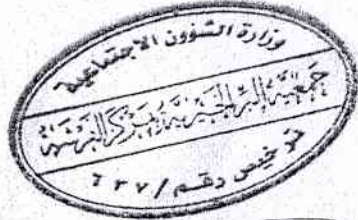 وزارة الشؤون الاجتماعية
جمعية البر الخيرية بمركز البرشة
ترخيص رقم / ٦٣٧